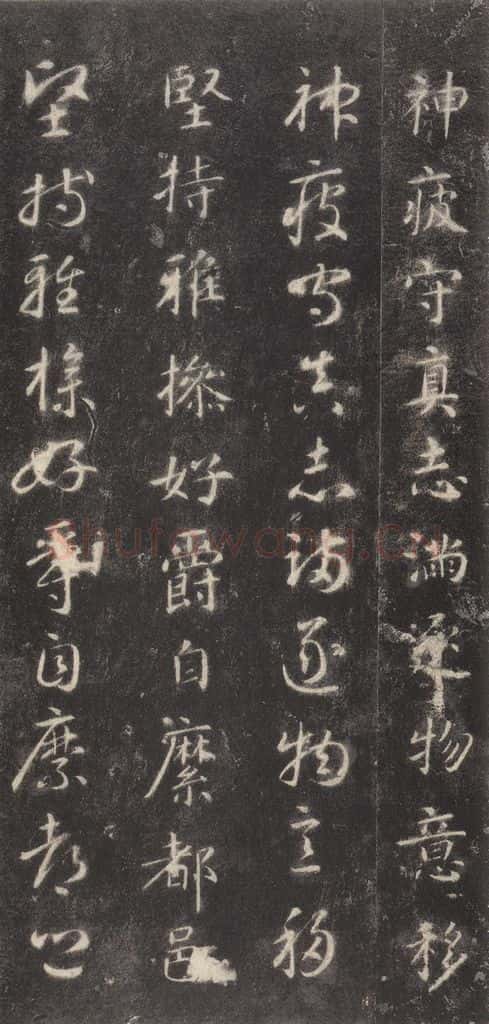 神疲守真志滿逐物意移
神疲守真志滿逐物意移
堅持雅操好爵自縻都邑
堅持雅操好爵自縻都邑
shufawang.cn